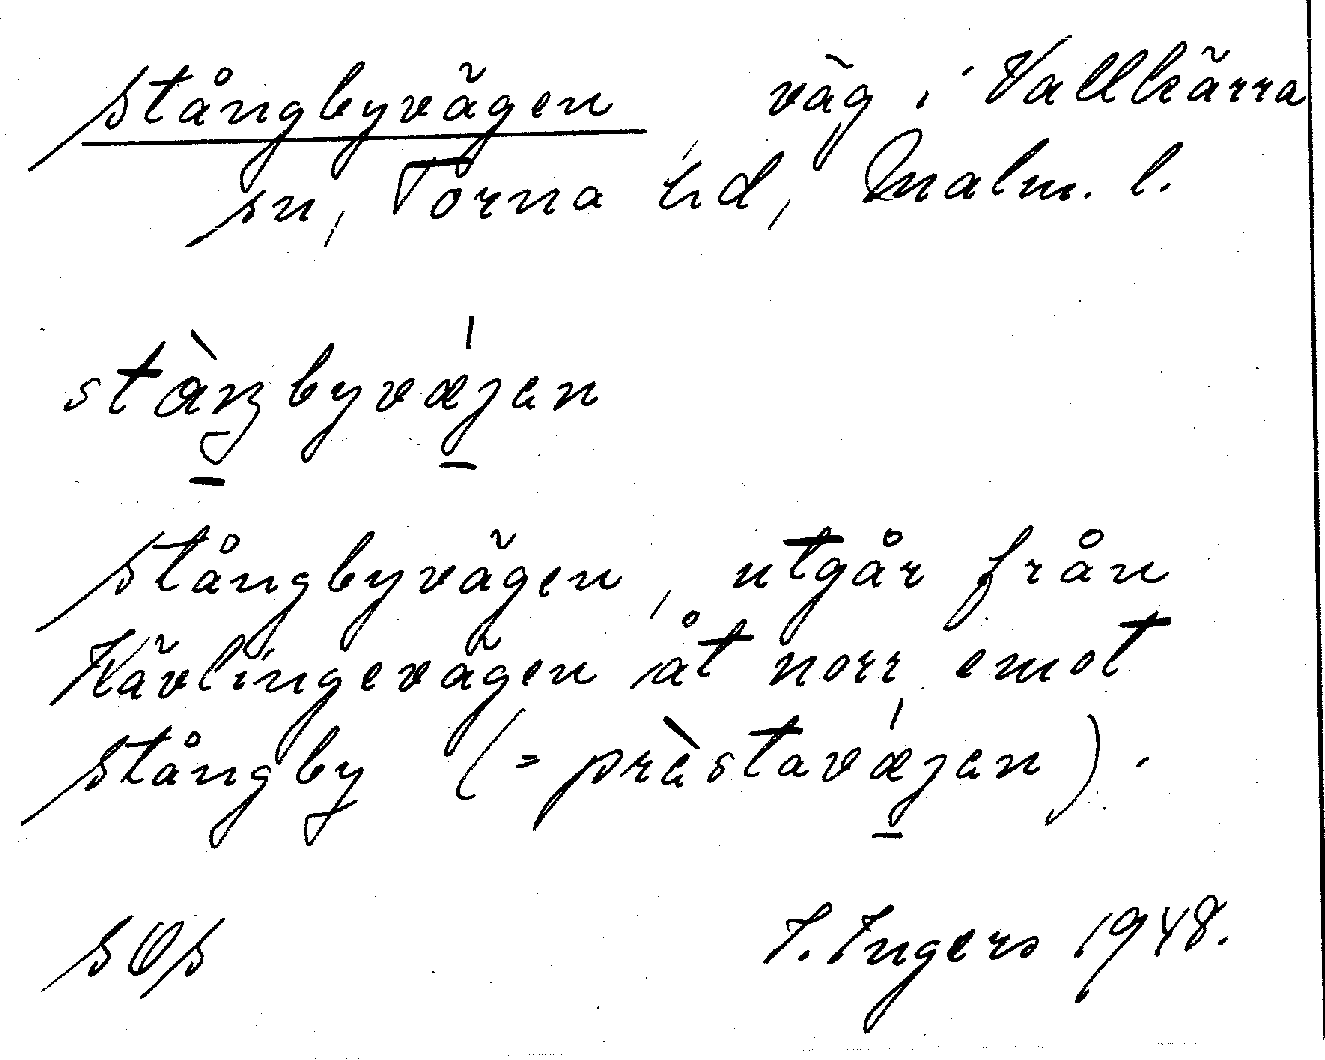 Stångbyvägen, väg i Vallkärra
sn, Torna hd, Malm. l.
stàŋbyvǽjen
Stångbyvägen, utgår från
Kävlingevägen åt norr emot
Stångby (= prèstavǽjen).
SOS
I. Ingers 1948.